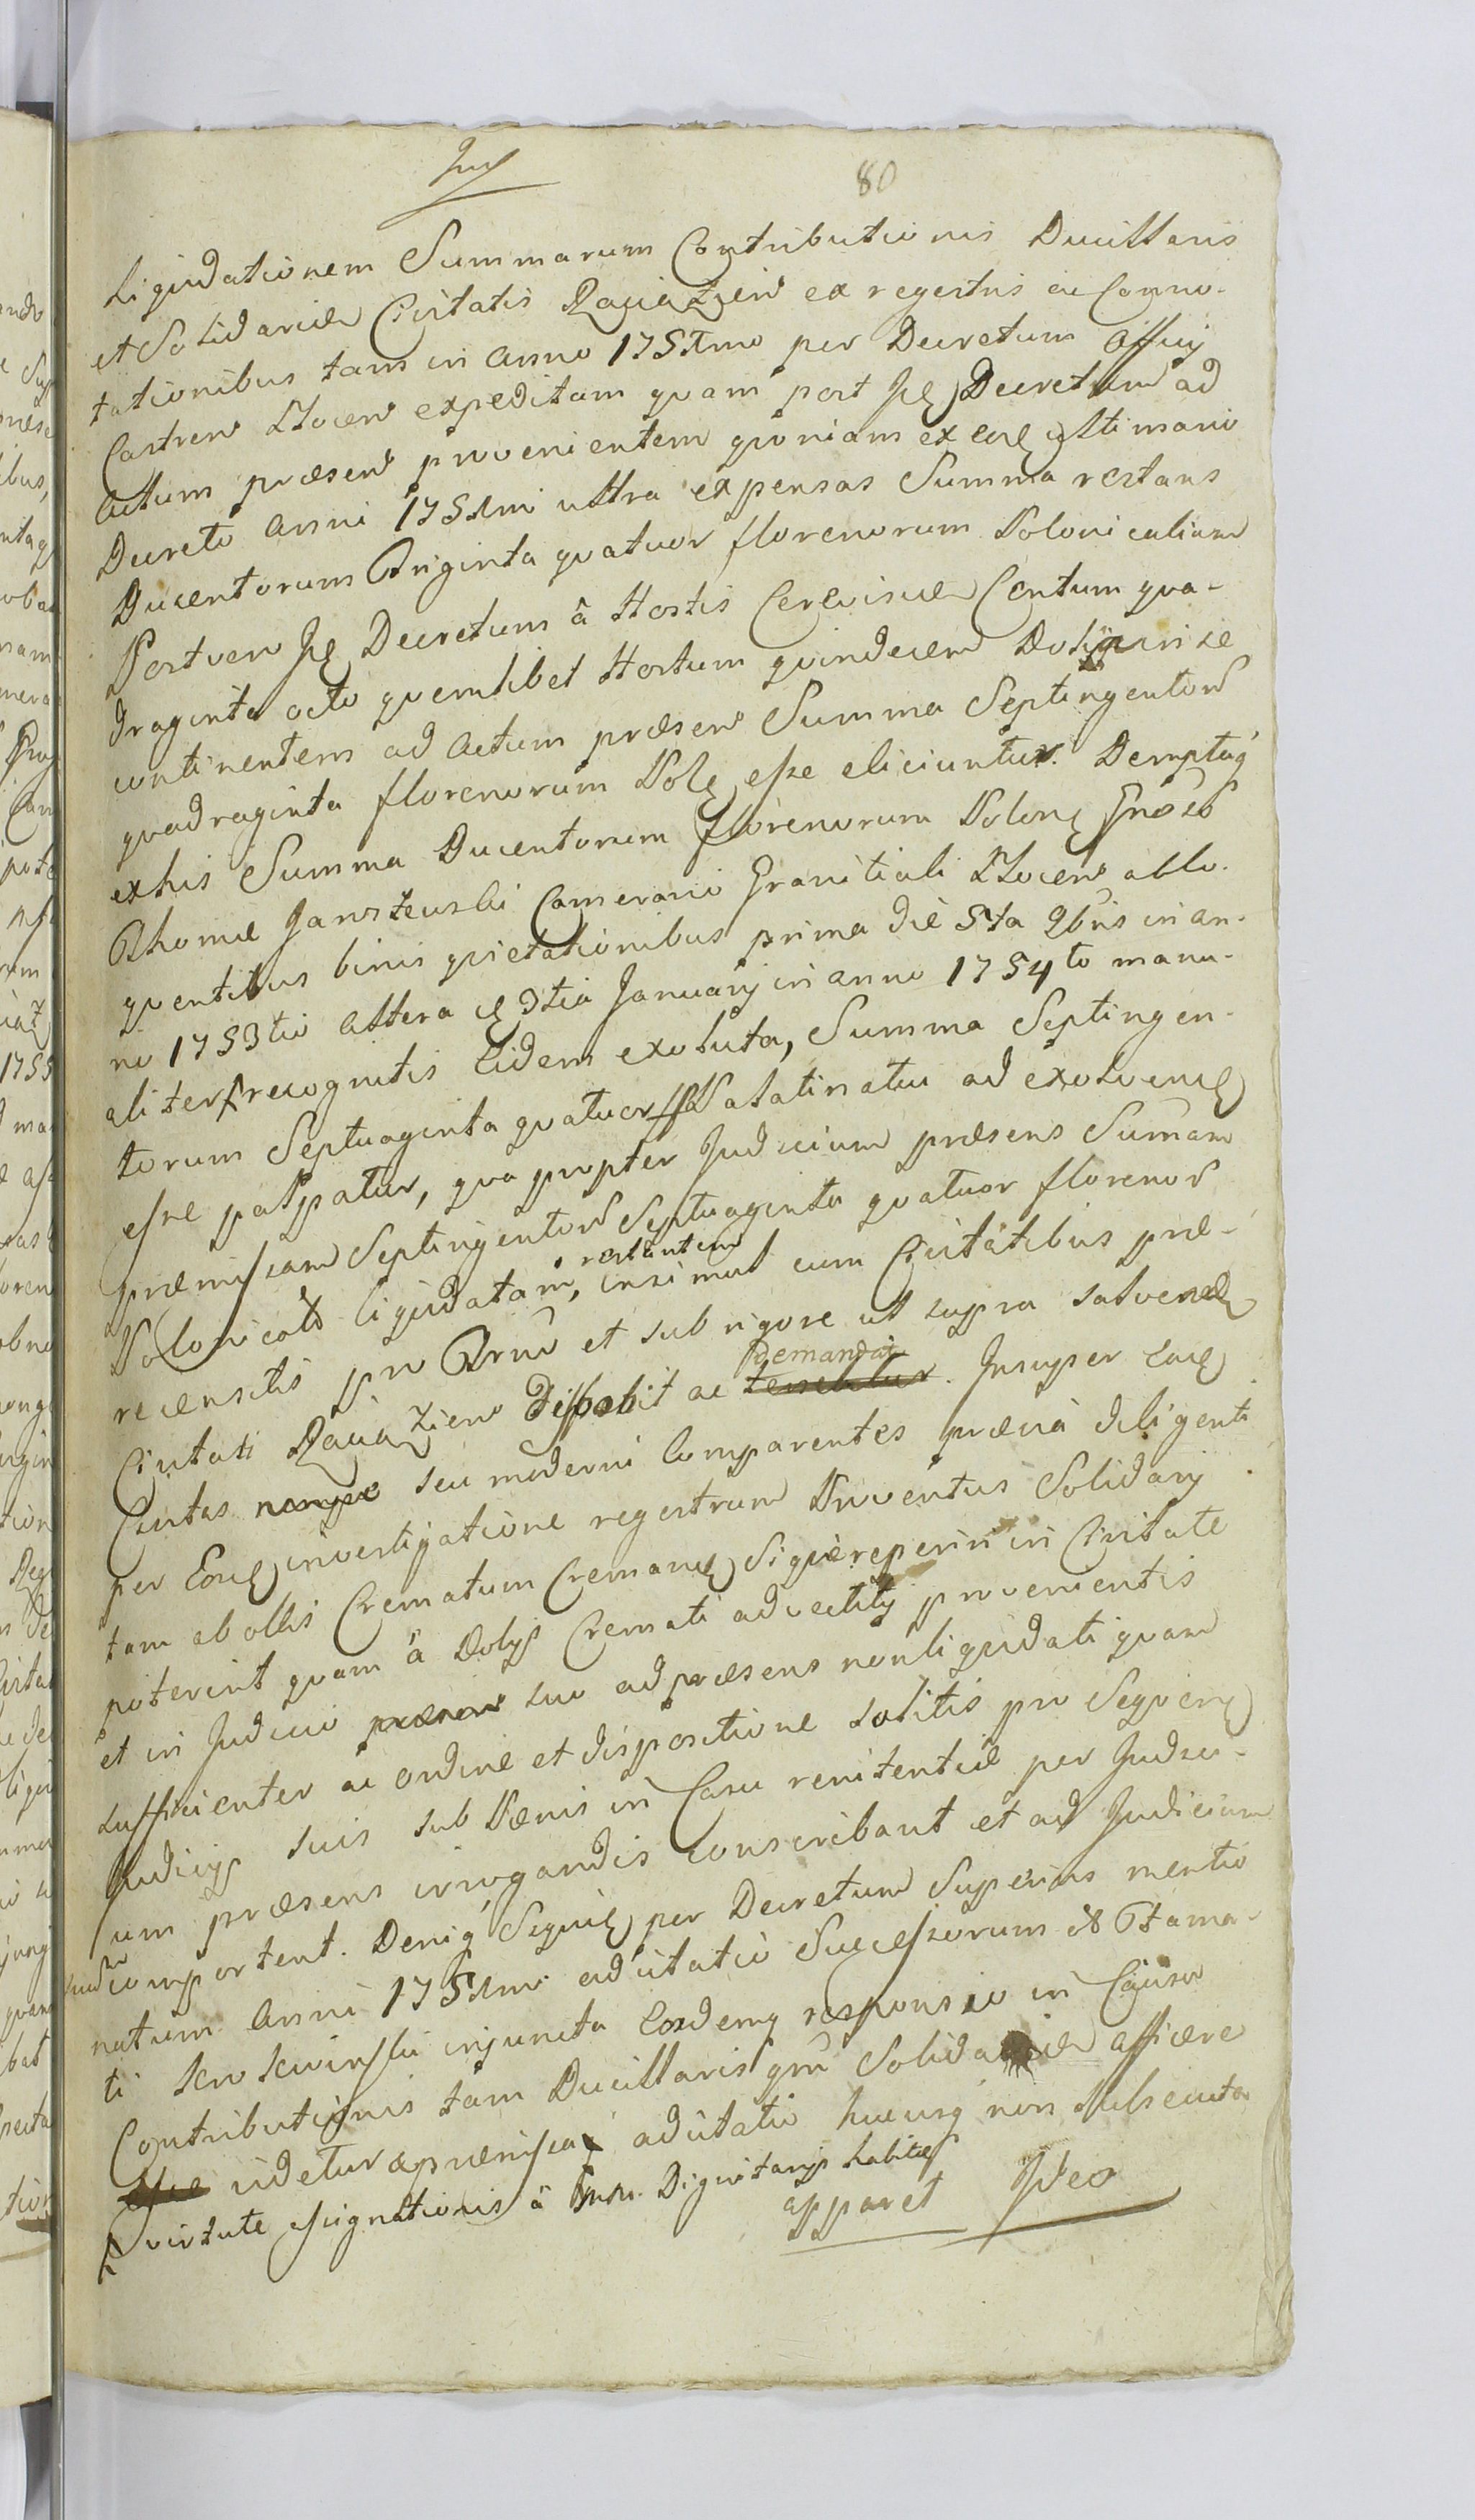 80
Liquidationem Summarum Contributionis Ducillaris
et Solidariæ Civitatis Raciążien ex regestris ac Conno-
tationibus tam in anno 1751mo per Decretum Officij
Castren Plocen expeditam quam post Decretum ad
actum præsen provenientem quoniam ex eoq ultimario
Decreto anni 1751mi ultra expensas Summa restans
Ducentorum Triginta quatuor florenorum Polonicalium
Post vero Decretum à Hostis Cerevisiæ Centum qua-
draginta octo quemlibet Hostum quindecem Dolia in se
continentem ad actum præsen Summa Septingentor
quadraginta florenorum Polq esse eliciuntur. Demptaq
ex his Summa Ducentorum florenorum Polonq
Thomæ Janoszewski Camerario Granitiali Plocen
quentibus binis quietationibus prima die 5ta 9bris in an-
no 1753tio altera 3tia Januarij in anno 1754to manu-
aliter recognitis Eidem exoluta, Summa Septingen-
torum Septuaginta quatuor ff Palatinatui ad exolvenq
esse palpatur, qua propter Judicium præsens Sumam
præmissam Septingentor Septuaginta quatuor florenor
Polonicals liquidatam, restantem insimul cum Civitatibus præ-
recensitis pro et sub rigore ut supra solvenq
Civitati Raciążien ac tenebitur Demandat. Insuper eaq
Civitas nempe seu moderni Comparentes prævia diligenti
per Eosq investigatione regestrum Proventus Solidarij
tam ab ollis Crematum Cremanq Si quæ reperiri in Civitate
poterint quam à Dolijs Cremati advectitij provenientis
et in Judicio præsen suo ad præsens non liquidati quam
sufficienter ac ordine et dispositione solitis pro Sequenq
Judicijs suis sub Pœnis in Casu renitentiæ per Judici-
um præsens irrogandis conscribant et ad Judicium
comportent. Deniq Sequiq per Decretum Superius mentio
natum Anni 1751mi adcitatio Successorum
ti injuncta Eosdemq responsio in Causa
Contributionis tam Ducillaris qm Solidariæ afficere
esse videtur præmissa adcitatio hucusq non subsecuta
virtute assignationis à Dignitarijs habitæ
apparet Ideo